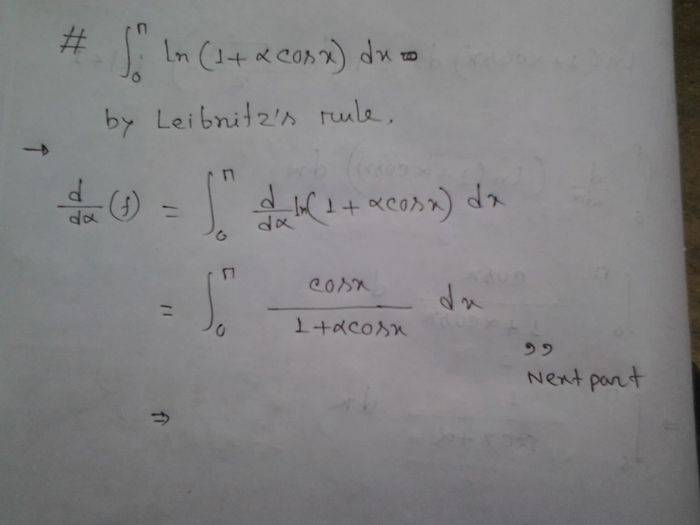 # ∫₀^π ln (1 + α cos x) dx =
by Leibnitz's rule.
→
d/dα (f) = ∫₀^π d/dα ln(1 + α cos x) dx
= ∫₀^π cos x / 1 + α cos x dx
,,
Next part
⇒